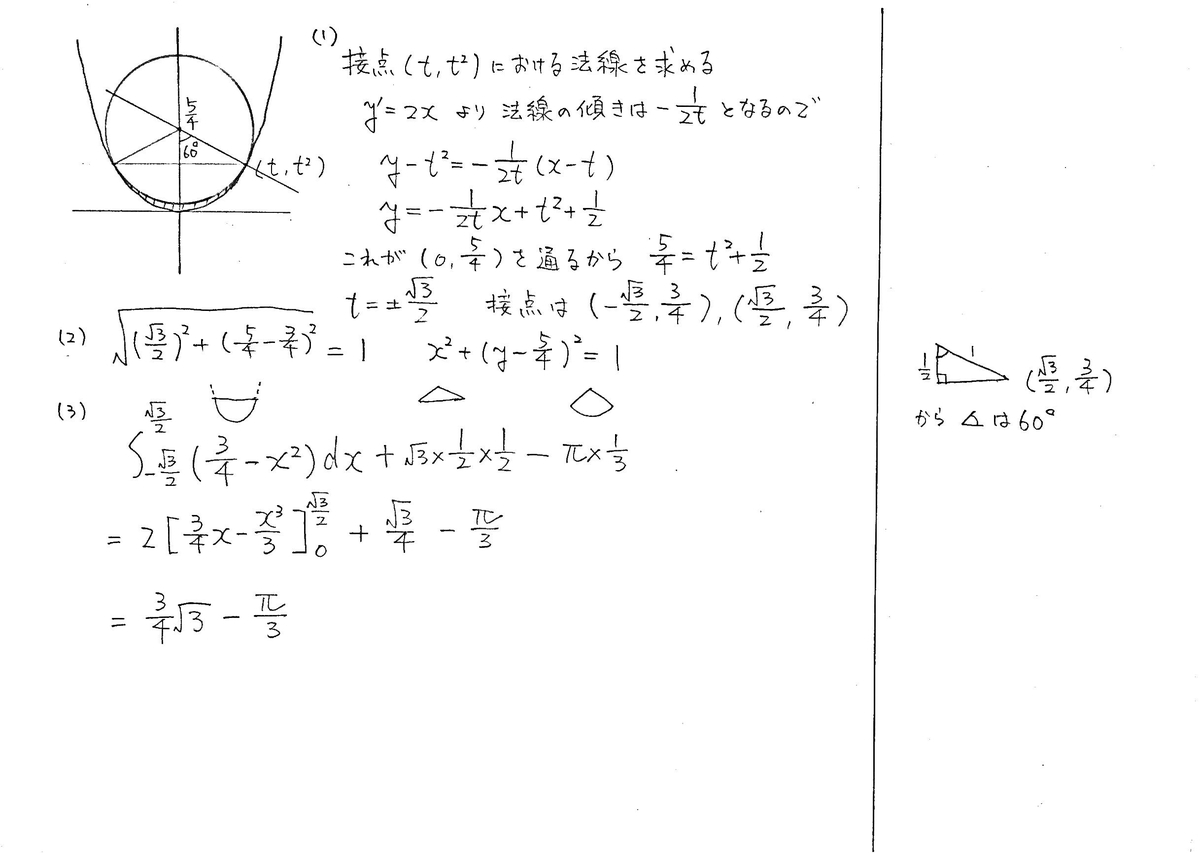 5/4
60°
(t, t²)
(1)
接点(t, t²)における法線を求める
y′=2x より 法線の傾きは -1/2t となるので
y-t²=-1/2t(x-t)
y=-1/2t x+t²+1/2
これが (0, 5/4)を通るから 5/4=t²+1/2
t=±√3/2 接点は (-√3/2, 3/4), (√3/2, 3/4)
(2) √((√3/2)²+(5/4-3/4)²) = 1 x²+(y-5/4)²=1
(3)
∫_{-√3/2}^{√3/2} (3/4-x²)dx + √3×1/2×1/2 - π×1/3
= 2[3/4x-x³/3]_0^{√3/2} + √3/4 - π/3
= 3/4√3 - π/3
1/2 1 (√3/2, 3/4)
から ∠は60°